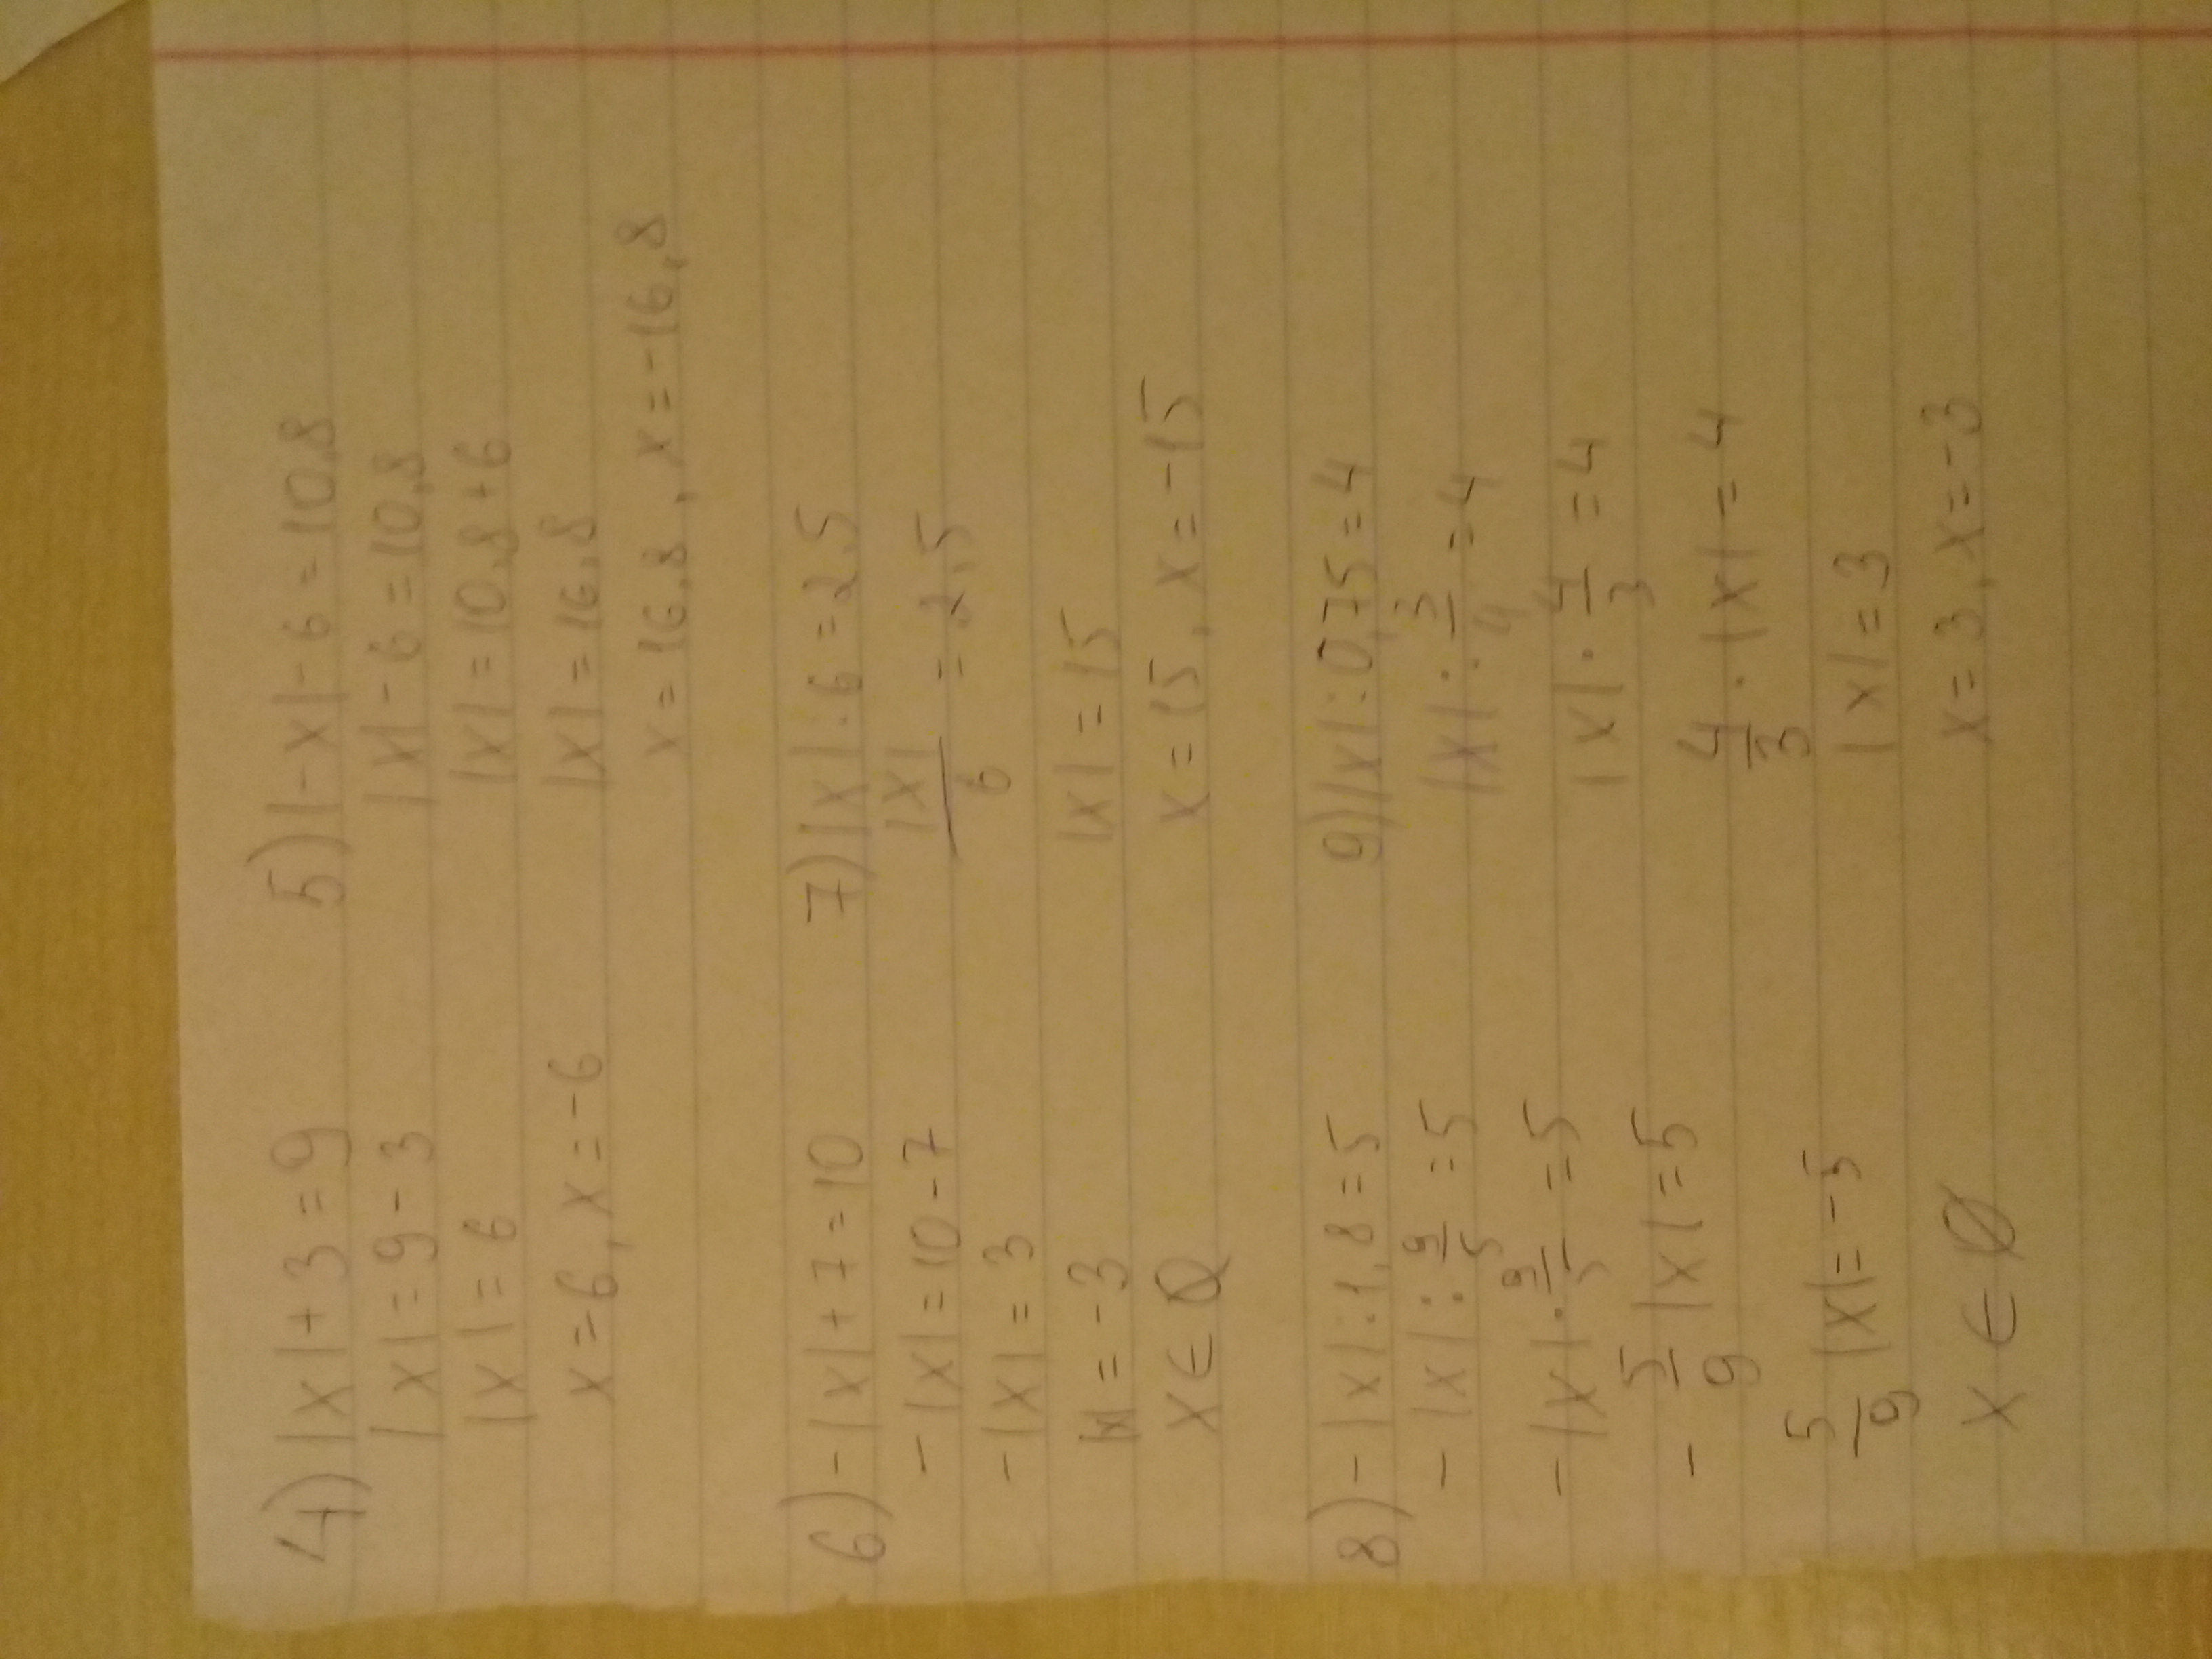 4) |x|+3=9
|x|=9-3
|x|=6
x=6, x=-6
5) |-x|-6=10,8
|x|-6=10,8
|x|=10,8+6
|x|=16,8
x=16,8, x=-16,8
6) -|x|+7=10
-|x|=10-7
-|x|=3
|x|=-3
x∈∅
7) |x|:6=2,5
|x|/6=2,5
|x|=15
x=15, x=-15
8) -|x|:1,8=5
-|x|:9/5=5
-|x|·9/5=5
-5/9|x|=5
5/9|x|=-5
x∈∅
9) |x|:0,75=4
|x|:3/4=4
|x|·4/3=4
4/3·|x|=4
|x|=3
x=3, x=-3